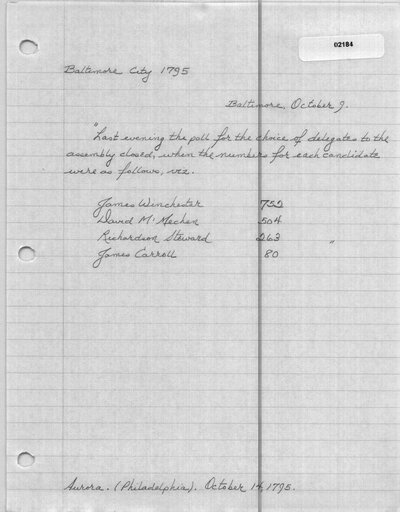 02184
Baltimore City 1795
Baltimore, October 9.
"Last evening the poll for the choice of delegates to the
assembly closed, when the numbers for each candidate
were as follows, viz.
James Winchester 752
David McMechen 504
Richardson Steward 263 "
James Carroll 80
Aurora. (Philadelphia). October 14, 1795.